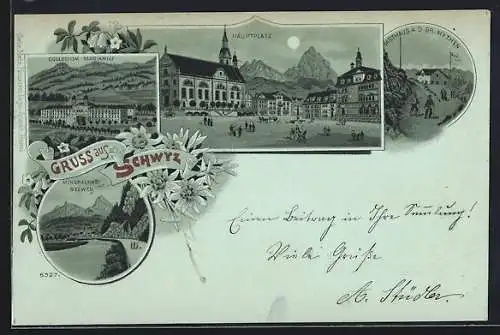 COLLEGIUM MARIAHILF
HAUPTPLATZ
WIRTHAUS A. D. GR. MYTHEN
GRUSS aus SCHWYZ
SEEWEN
5327.
Einen Beitrag in Ihre Sammlung!
Viele Grüße
A. Stüdler